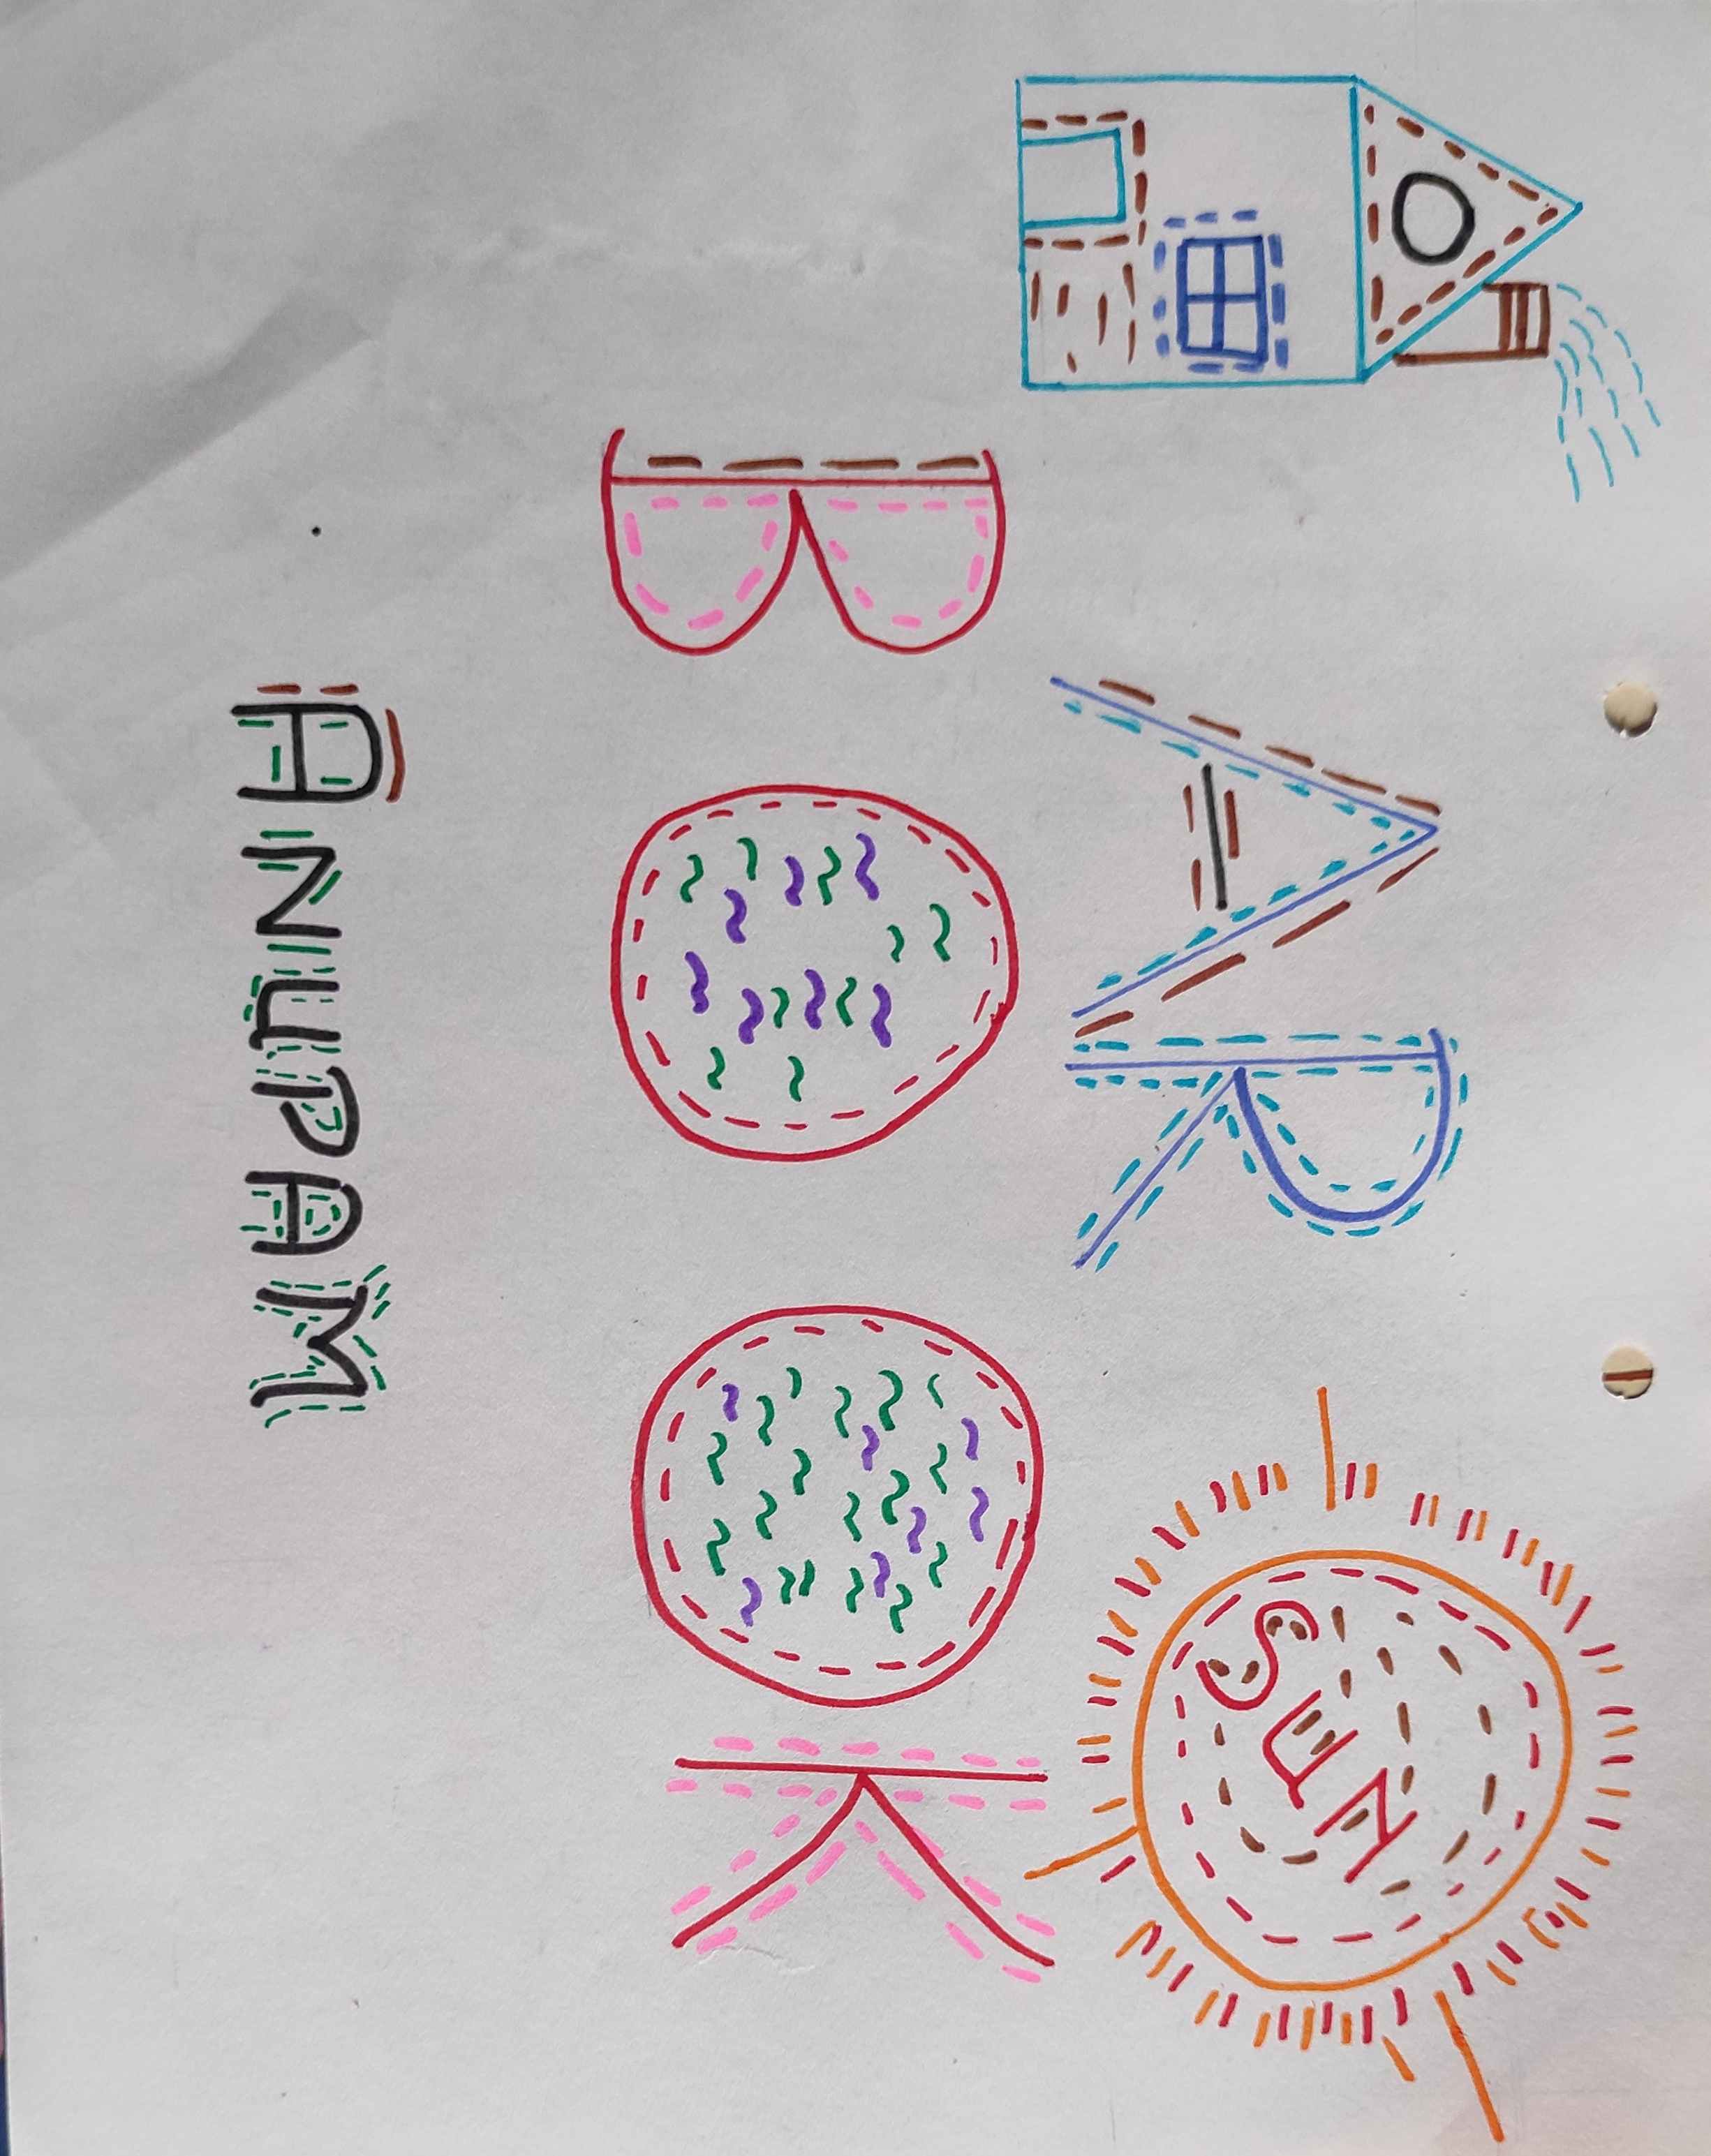 AR
SUN
BOOK
ANUPAM